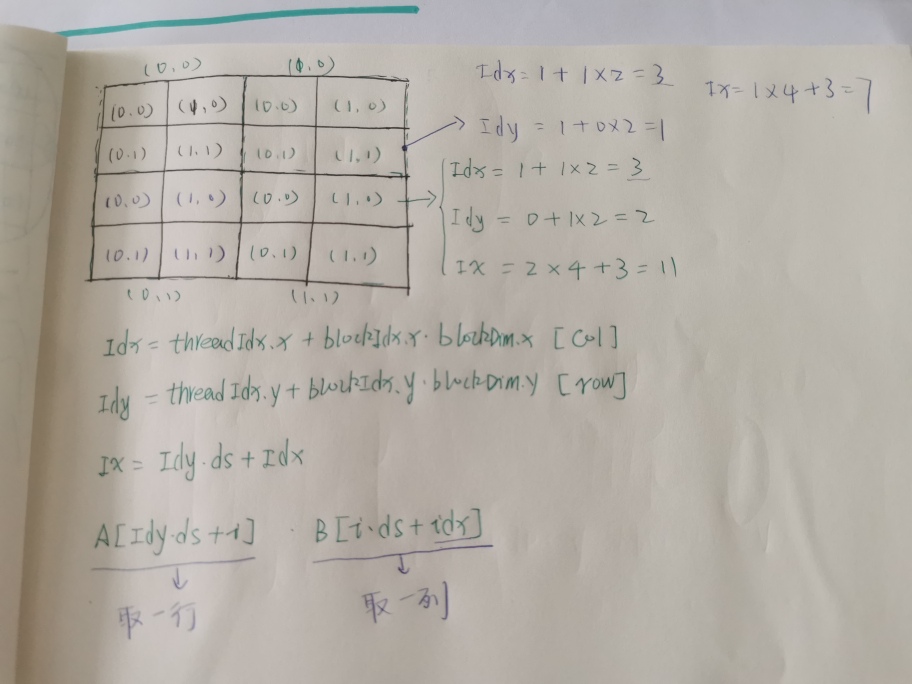 (0,0) (1,0)
(0.0) (1,0) (0.0) (1,0)
(0.1) (1,1) (0.1) (1,1)
(0,0) (1,0) (0.0) (1,0)
(0.1) (1,1) (0.1) (1,1)
(0,1) (1,1)
Idx = 1 + 1×2 = 3
Idy = 1 + 0×2 = 1
Ix = 1×4+3 = 7
Idx = 1 + 1×2 = 3
Idy = 0+1×2 = 2
IX = 2×4+3 = 11
Idx = threadIdx.x + blockIdx.x · blockDim.x [Col]
Idy = threadIdx.y + blockIdx.y · blockDim.y [row]
IX = Idy·ds + Idx
A[Idy·ds+i] · B[i·ds+idx]
取一行 取一列